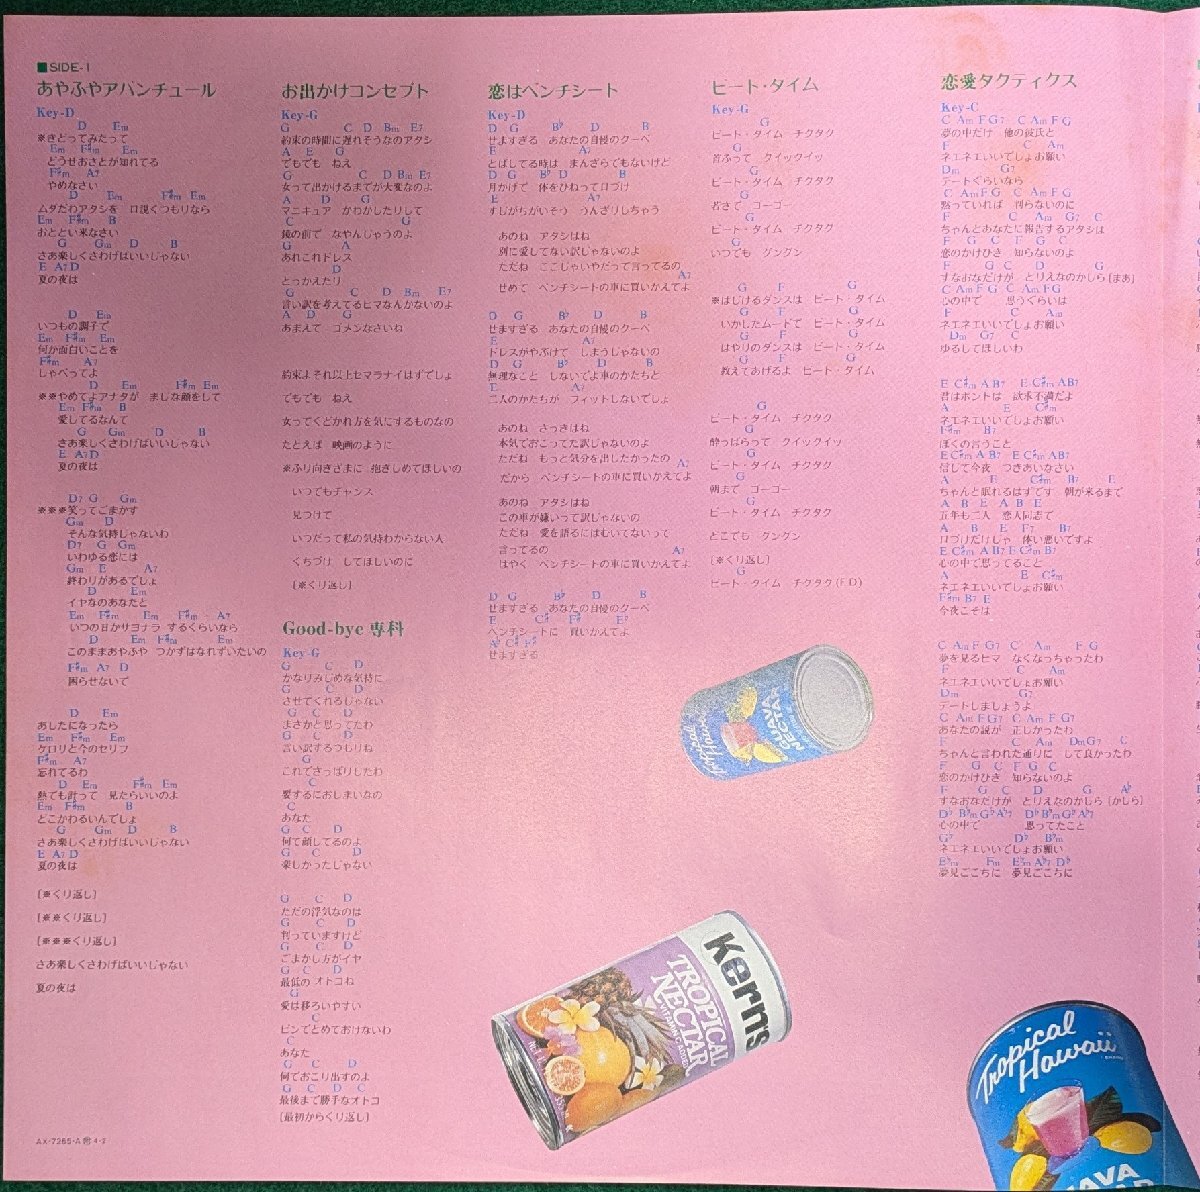 ■SIDE-1
あやふやアバンチュール
Key-D
D Em
※きどってみたって
Em F#m Em
どうせおさとが知れてる
F#m A7
やめなさい
D Em F#m Em
ムダだわアタシを 口説くつもりなら
Em F#m B
おととい来なさい
G Gm D B
さあ楽しくさわげばいいじゃない
E A7 D
夏の夜は
D Em
いつもの調子で
Em F#m Em
何か面白いことを
F#m A7
しゃべってよ
D Em F#m Em
※※やめてよアナタが ましな顔をして
Em F#m B
愛してるなんて
G Gm D B
さあ楽しくさわげばいいじゃない
E A7 D
夏の夜は
D7 G Gm
※※※笑ってごまかす
Gm D
そんな気持じゃないわ
D7 G Gm
いわゆる恋には
Gm E A7
終わりがあるでしょ
D Em
イヤなのあなたと
Em F#m Em F#m A7
いつの日かサヨナラ するくらいなら
D Em F#m Em
このままあやふや つかずはなれずいたいの
F#m A7 D
困らせないで
D Em
あしたになったら
Em F#m Em
ケロリと今のセリフ
F#m A7
忘れてるわ
D Em F#m Em
熱でも計って 見たらいいのよ
Em F#m B
どこかわるいんでしょ
G Gm D B
さあ楽しくさわげばいいじゃない
E A7 D
夏の夜は
[※くり返し]
[※※くり返し]
[※※※くり返し]
さあ楽しくさわげばいいじゃない
夏の夜は
AX-7265-A 4-2
お出かけコンセプト
Key-G
G C D Bm E7
約束の時間に遅れそうなのアタシ
A E G
でもでも ねえ
G C D Bm E7
女って出かけるまでが大変なのよ
A D G
マニキュア かわかしたりして
C G
鏡の前で なやんじゃうのよ
G A
あれこれドレス
D
とっかえたり
G C D Bm E7
言い訳を考えてるヒマなんかないのよ
A D G
あまえて ゴメンなさいね
約束よそれ以上セマラナイはずでしょ
でもでも ねえ
女ってくどかれ方を気にするものなの
たとえば 映画のように
※ふり向きざまに 抱きしめてほしいの
いつでもチャンス
見つけて
いつだって私の気持わからない人
くちづけ してほしいのに
[※くり返し]
Good-bye 専科
Key-G
G C D
かなりみじめな気持に
G C D
させてくれるじゃない
G C D
まさかと思ってたわ
G C D
言い訳するつもりね
G
これでさっぱりしたわ
C
要するにおしまいなの
C
あなた
G C D
何て顔してるのよ
G C D
楽しかったじゃない
G C D
ただの浮気なのは
G C D
判っていますけど
G C D
ごまかし方がイヤ
G C D
最低の オトコね
G
愛は移ろいやすい
C
ピンでとめておけないわ
C
あなた
G C D
何でおこり出すのよ
G C D C
最後まで勝手なオトコ
[最初からくり返し]
恋はベンチシート
Key-D
D G B♭ D B
せますぎる あなたの自慢のクーペ
E A7
とばしてる時は まんざらでもないけど
D G B♭ D B
月かげで 体をひねって口づけ
E A7
すじがちがいそう うんざりしちゃう
あのね アタシはね
別に愛してない訳じゃないのよ
ただね ここじゃいやだって言ってるの
A7
せめて ベンチシートの車に買いかえてよ
D G B♭ D B
せますぎる あなたの自慢のクーペ
E A7
ドレスがやぶけて しまうじゃないの
D G B♭ D B
無理なこと しないでよ車のかたちと
E A7
二人のかたちが フィットしないでしょ
あのね さっきはね
本気でおこってた訳じゃないのよ
ただね もっと気分を出したかったの
A7
だから ベンチシートの車に買いかえてよ
あのね アタシはね
この車が嫌いって訳じゃないの
ただね 愛を語るにはむいてないって
言ってるの A7
はやく ベンチシートの車に買いかえてよ
D G B♭ D B
せますぎる あなたの自慢のクーペ
E C# F# E♭
ベンチシートに 買いかえてよ
A♭ C# F#
せますぎる
ビート・タイム
Key-G
G
ビート・タイム チクタク
G
首ふって クイックイッ
G
ビート・タイム チクタク
G
若さで ゴーゴー
G
ビート・タイム チクタク
G
いつでも グングン
G F G
※はじけるダンスは ビート・タイム
G F G
いかしたムードで ビート・タイム
G F G
はやりのダンスは ビート・タイム
G F G
教えてあげるよ ビート・タイム
G
ビート・タイム チクタク
G
酔っぱらって クイックイッ
G
ビート・タイム チクタク
G
朝まで ゴーゴー
G
ビート・タイム チクタク
G
どこでも グングン
[※くり返し]
G
ビート・タイム チクタク(F.D)
恋愛タクティクス
Key-C
C Am F G7 C Am F G
夢の中だけ 他の彼氏と
F C Am
ネエネエいいでしょお願い
Dm G7
デートぐらいなら
C Am F G C Am F G
黙っていれば 判らないのに
F C Am G7 C
ちゃんとあなたに報告するアタシは
F G C F G C
恋のかけひき 知らないのよ
F G C D G
すなおなだけが とりえなのかしら[まあ]
C Am F G C Am F G
心の中で 思うぐらいは
F C Am
ネエネエいいでしょお願い
Dm G7 C
ゆるしてほしいわ
E C#m A B7 E C#m A B7
君はホントは 欲求不満だよ
A E C#m
ネエネエいいでしょお願い
F#m B7
ぼくの言うこと
E C#m A B7 E C#m A B7
信じて今夜 つきあいなさい
A E C#m B7 E
ちゃんと眠れるはずです 朝が来るまで
A B E A B E
五年も二人 恋人同志で
A B E F7 B7
口づけだけじゃ 体い悪いですよ
E C#m A B7 E C#m B7
心の中で思ってること
A E C#m
ネエネエいいでしょお願い
F#m B7 E
今夜こそは
C Am F G7 C Am F G
夢を見るヒマ なくなっちゃったわ
F C Am
ネエネエいいでしょお願い
Dm G7
デートしましょうよ
C Am F G7 C Am F G7
あなたの説が 正しかったわ
F C Am Dm G7 C
ちゃんと言われた通りに して良かったわ
F G C F G C
恋のかけひき 知らないのよ
F G C D G A♭
すなおなだけが とりえなのかしら [かしら]
D♭ B♭m G♭ A♭7 D♭ B♭m G♭ A♭7
心の中で 思ってたこと
G♭ D♭ B♭m
ネエネエいいでしょお願い
E♭m Fm E♭m A♭7 D♭
夢見ごこちに 夢見ごこちに
Tropical Hawaii
GUAVA NECTAR
Kern's
TROPICAL NECTAR
Tropical Hawaii